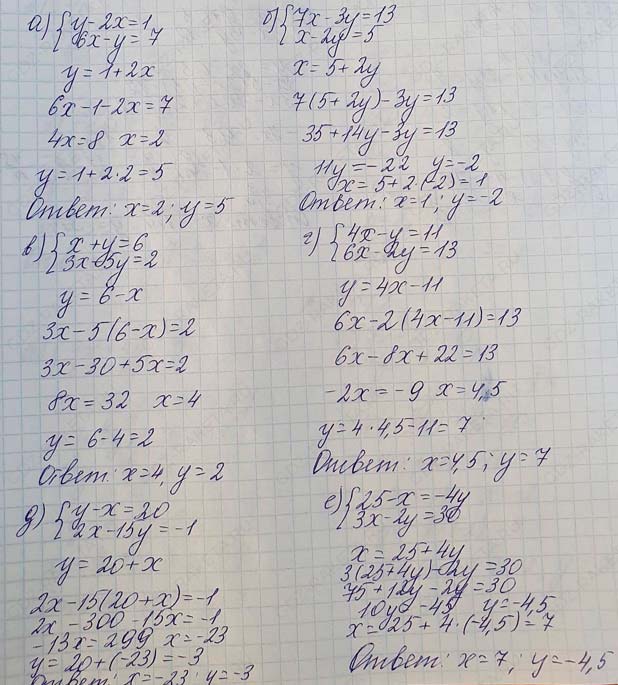 а) { y-2x=1
6x-y=7
y=1+2x
6x-1-2x=7
4x=8 x=2
y=1+2·2=5
Ответ: x=2; y=5
б) { 7x-3y=13
x-2y=5
x=5+2y
7(5+2y)-3y=13
35+14y-3y=13
11y=-22 y=-2
x=5+2·(-2)=1
Ответ: x=1; y=-2
в) { x+y=6
3x-5y=2
y=6-x
3x-5(6-x)=2
3x-30+5x=2
8x=32 x=4
y=6-4=2
Ответ: x=4, y=2
г) { 4x-y=11
6x-2y=13
y=4x-11
6x-2(4x-11)=13
6x-8x+22=13
-2x=-9 x=4,5
y=4·4,5-11=7
Ответ: x=4,5; y=7
д) { y-x=20
2x-15y=-1
y=20+x
2x-15(20+x)=-1
2x-300-15x=-1
-13x=299 x=-23
y=20+(-23)=-3
Ответ: x=-23; y=-3
е) { 25-x=-4y
3x-2y=30
x=25+4y
3(25+4y)-2y=30
75+12y-2y=30
10y=-45 y=-4,5
x=25+4·(-4,5)=7
Ответ: x=7; y=-4,5